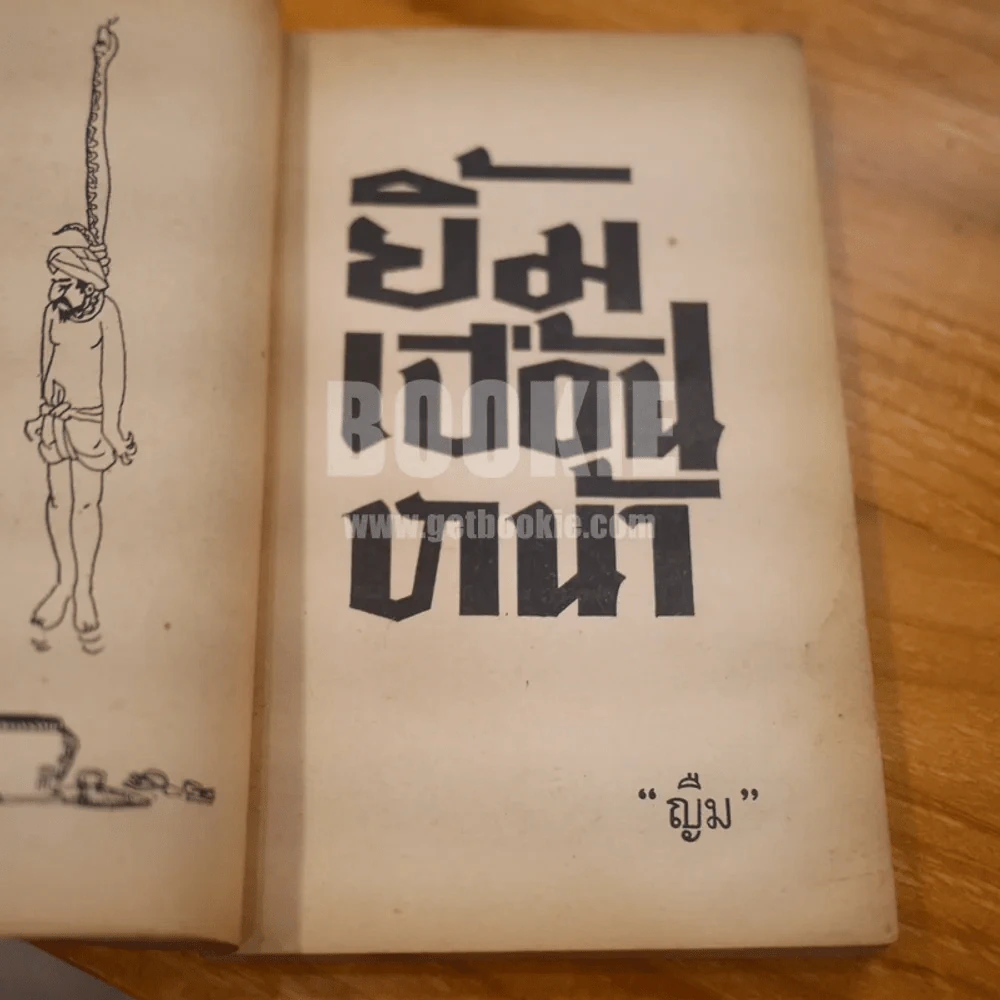 ยิ้ม
เปื้อน
หน้า
“ ญืม ”
BOOKIE
www.getbookie.com